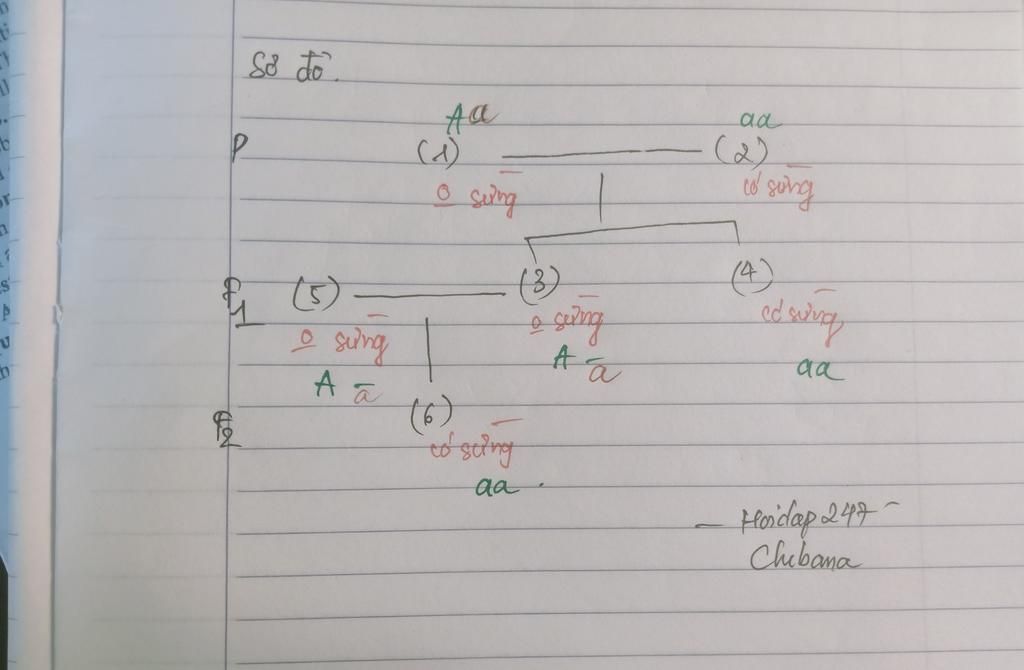 Sơ đồ.
Aa aa
P (1) (2)
0 sừng có sừng
F1 (5) (3) (4)
0 sừng 0 sừng có sừng
A a A a aa
F2 (6)
có sừng
aa.
- Hoidap247 -
Chibana